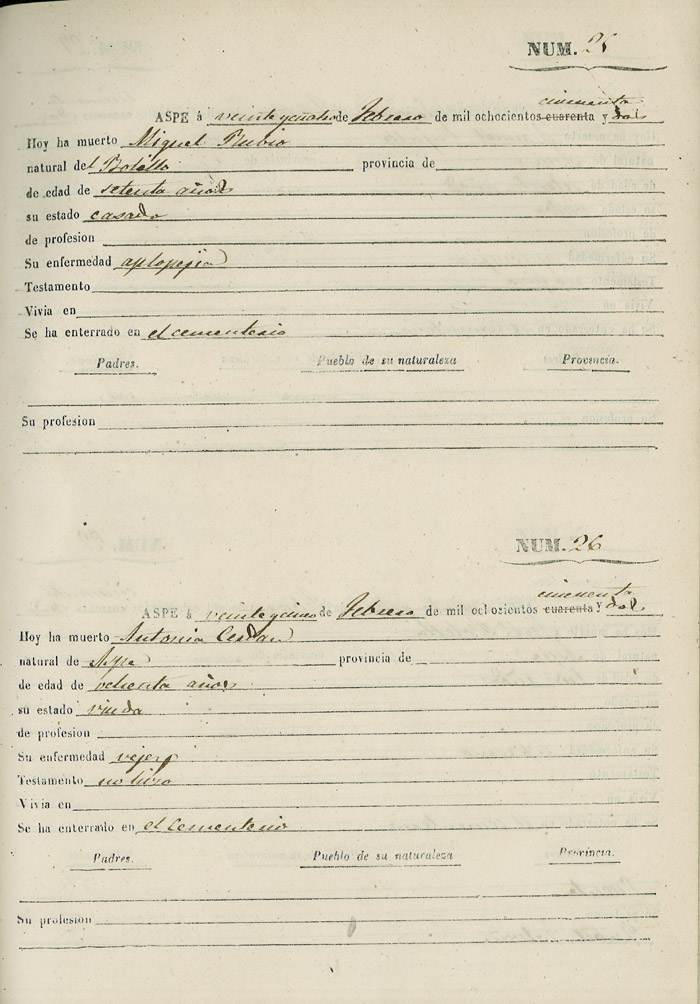 NUM. 25
cincuenta
ASPE á veinte y cuatro de Febrero de mil ochocientos cuarenta y dos
Hoy ha muerto Miguel Rubio
natural del provincia de
de edad de setenta años
su estado casado
de profesion
Su enfermedad aplopejia
Testamento
Vivia en
Se ha enterrado en el cementerio
Padres. Pueblo de su naturaleza Provincia.
Su profesion
NUM. 26
cincuenta
ASPE á veinte y cinco de Febrero de mil ochocientos cuarenta y dos
Hoy ha muerto Antonia Cerdan
natural de Aspe provincia de
de edad de ochenta años
su estado viuda
de profesion
Su enfermedad vejez
Testamento no hizo
Vivia en
Se ha enterrado en el Cementerio
Padres. Pueblo de su naturaleza Provincia.
Su profesion